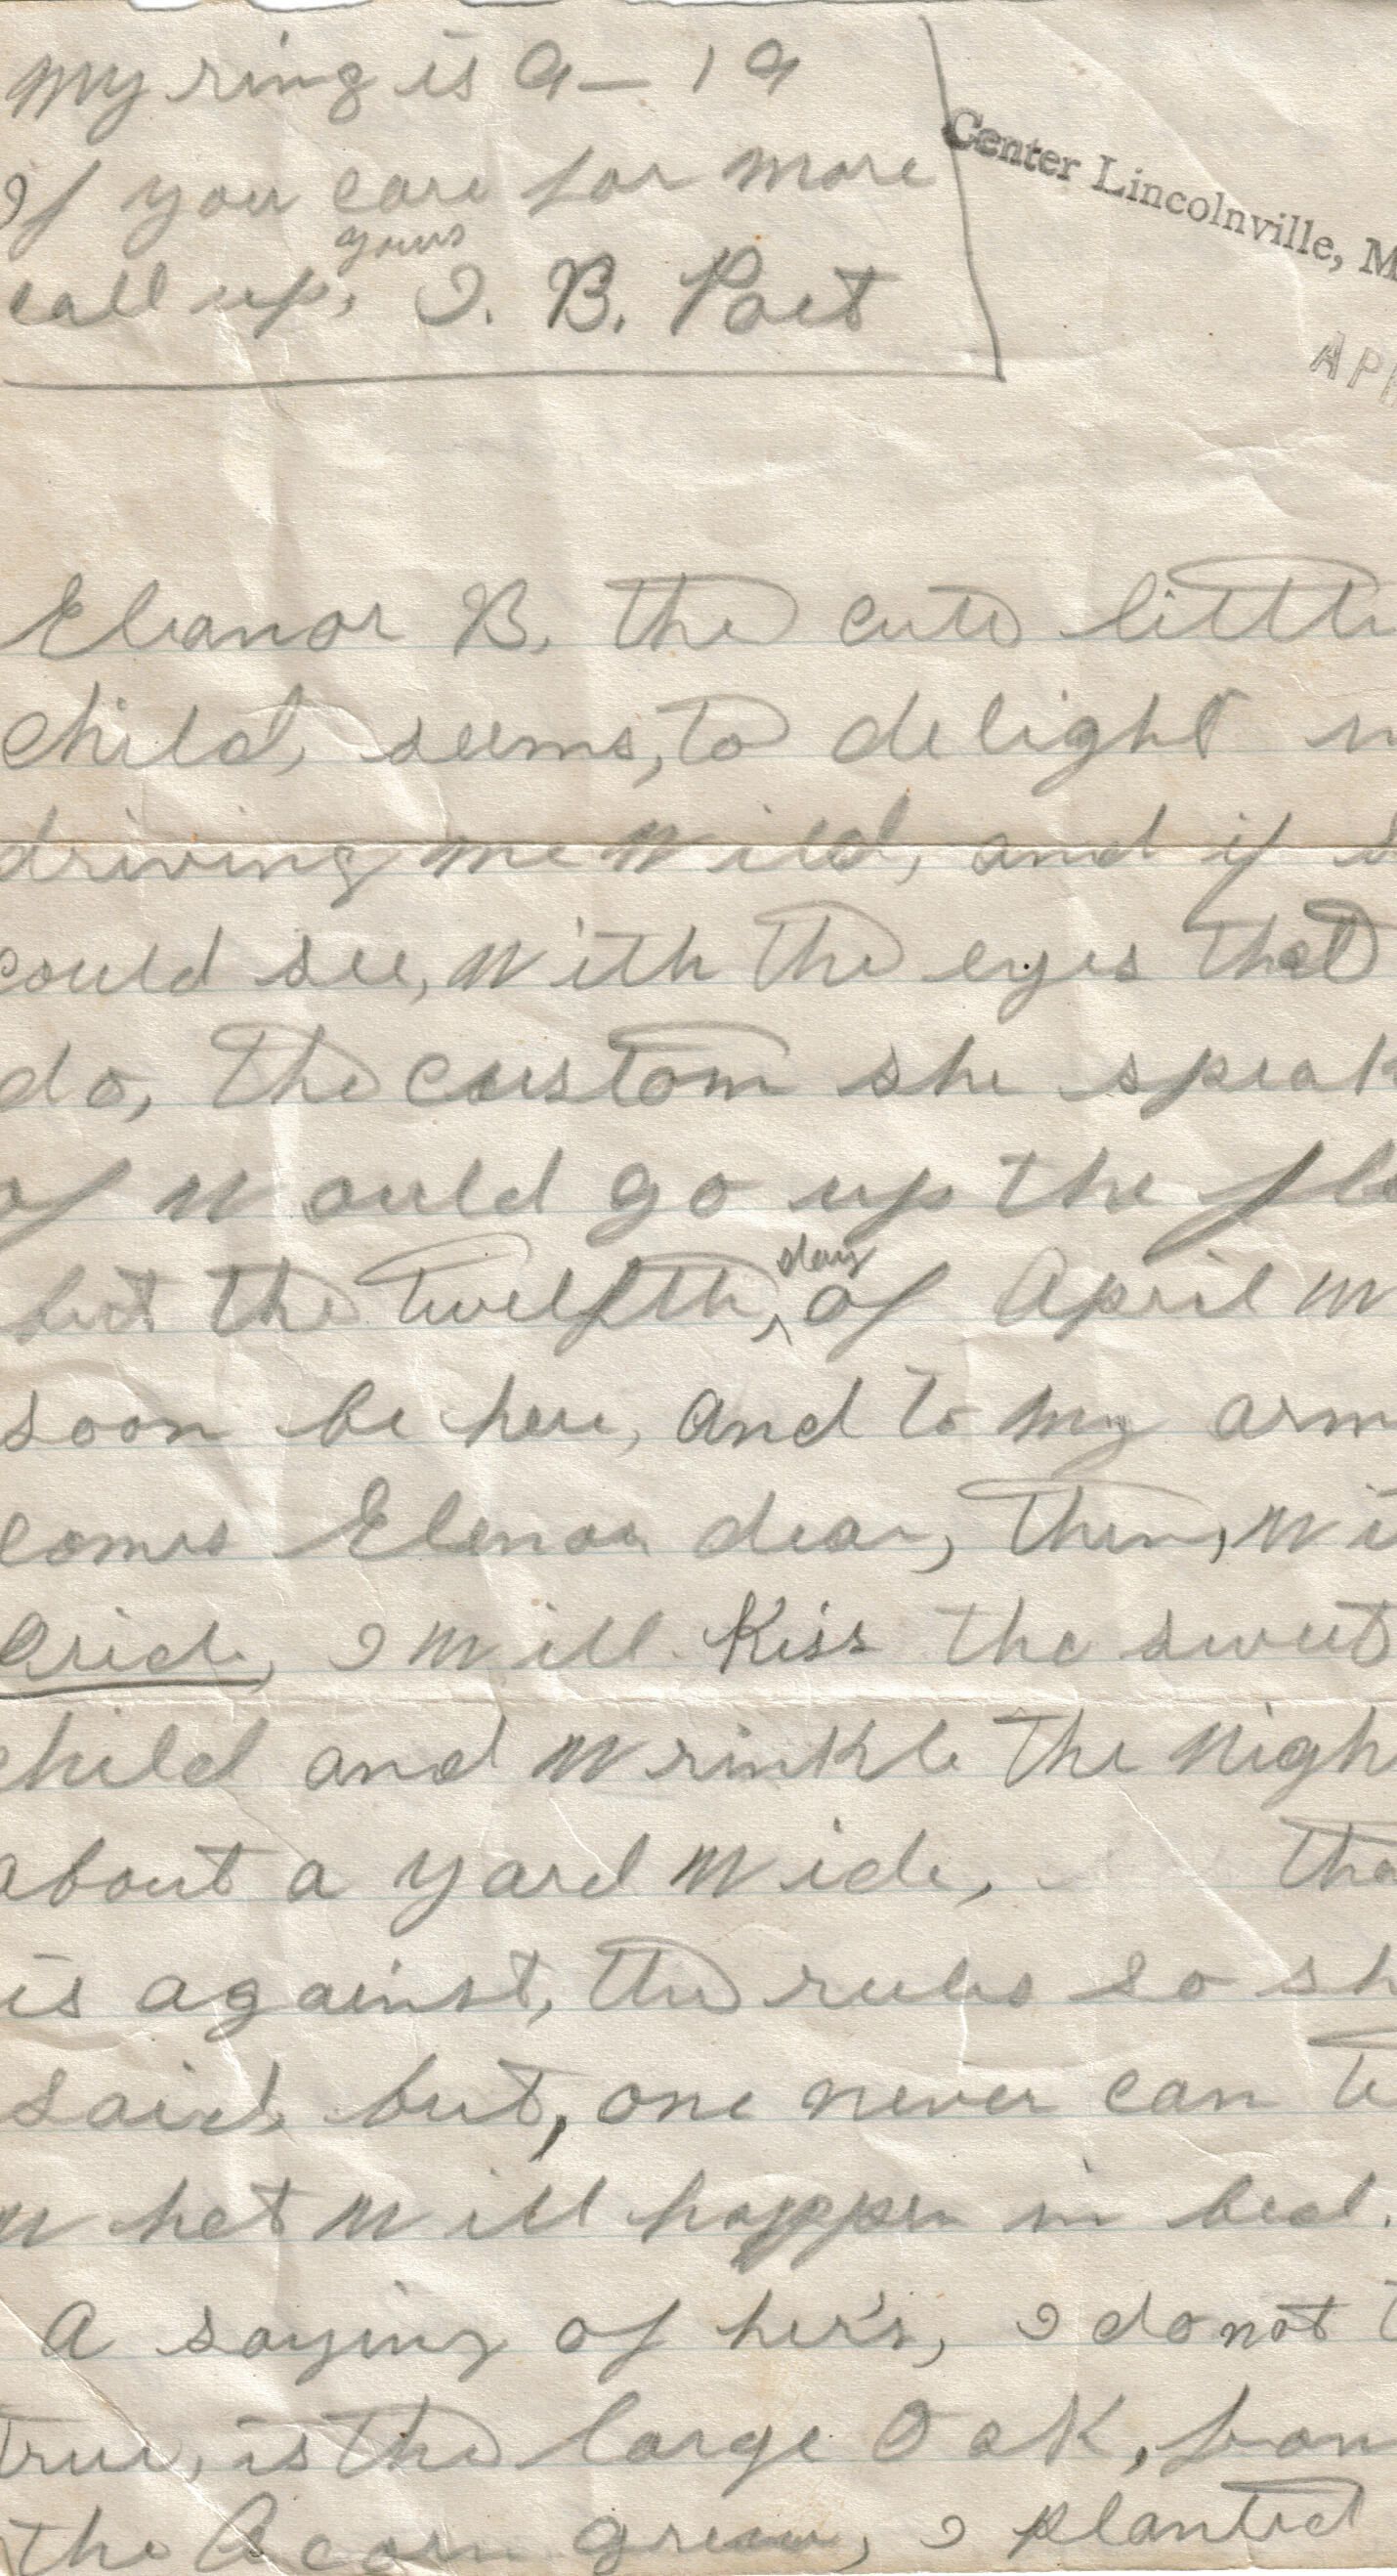 my ring is 9 – 19
If you care for more
yours
call up, I. B. Poet
Center Lincolnville, M
APR
Eleanor B. the cute little
child, seems, to delight
driving me wild, and if s
could see, with the eyes that
do, the custom she speak
of would go up the fl
day
but the twelfth, ^ of April w
soon be here, and to my arm
comes Elenor dear, then, wi
Pride, I will Kiss the sweet
child and wrinkle the nigh
about a yard wide, tha
is against, the rules so sh
said, but, one never can te
what will happen in bed.
A saying of her's, I do not t
true, is the large Oak, from
the Acorn grew, I planted